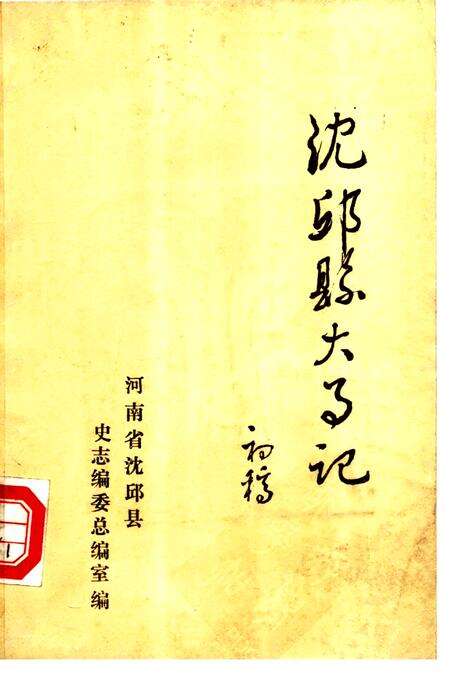 沈邱縣大事记
初稿
河南省沈邱县
史志编委总编室编